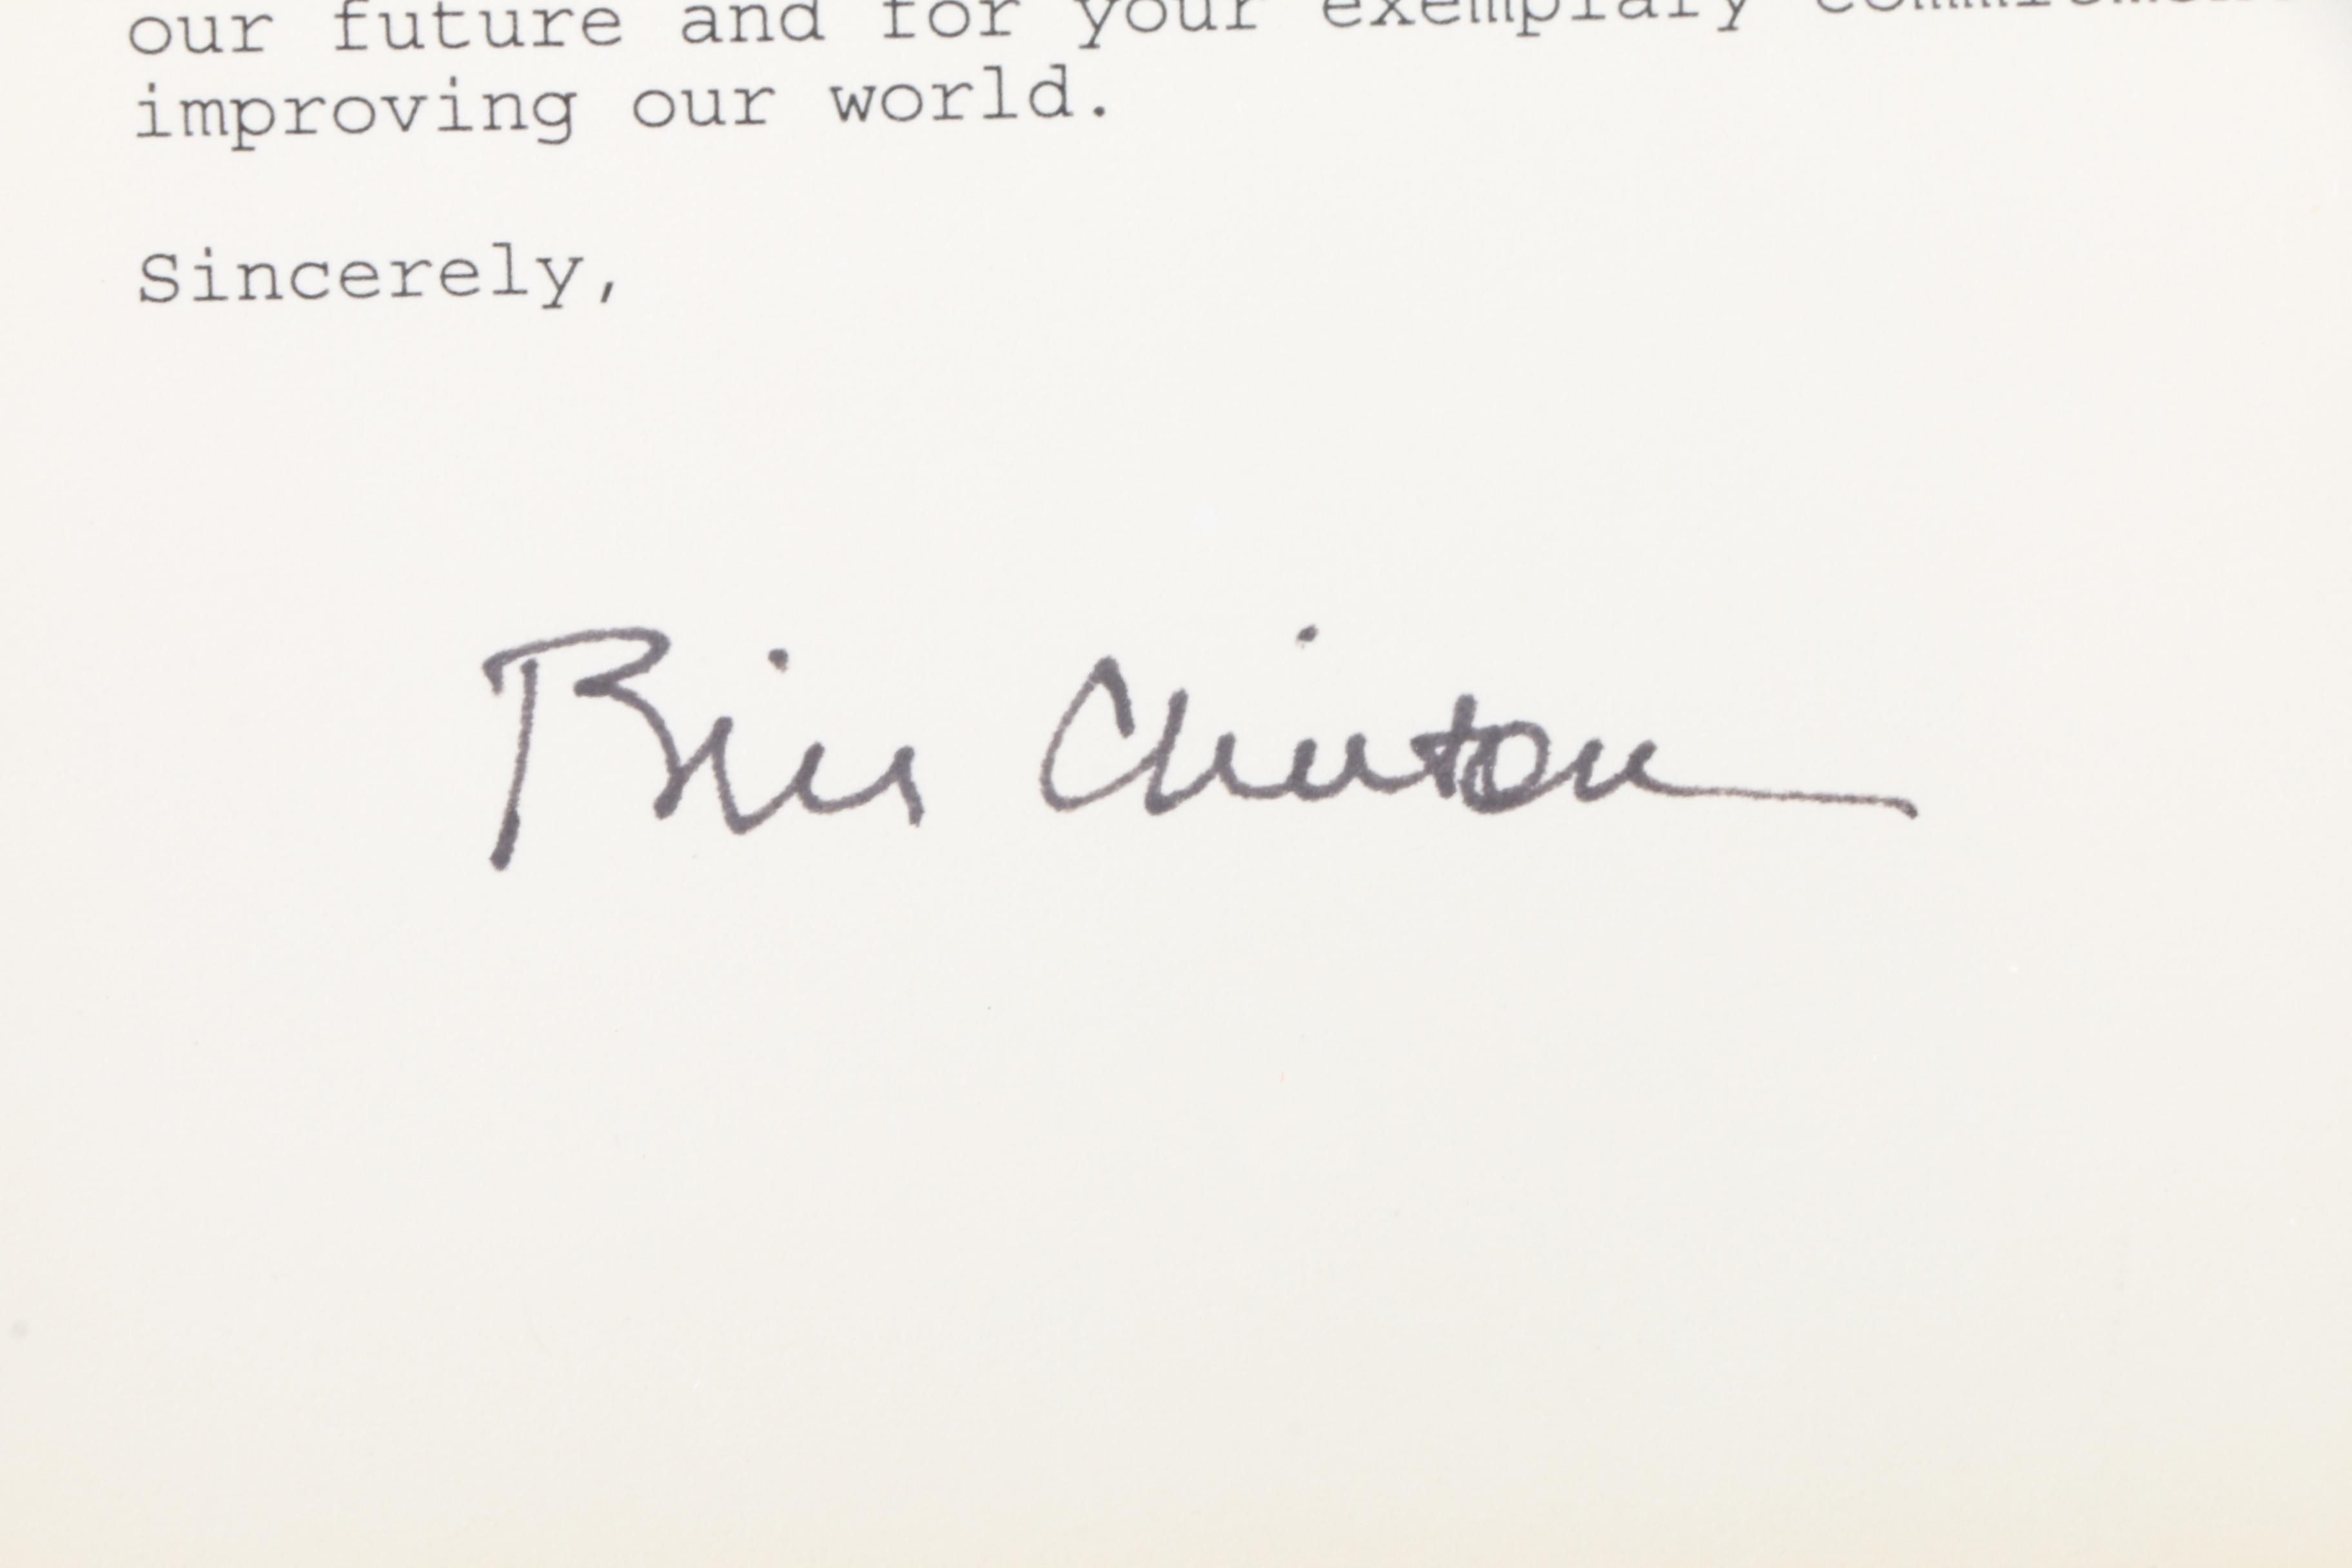 our future and for your exemplary commitment
improving our world.
Sincerely,
Bill Clinton